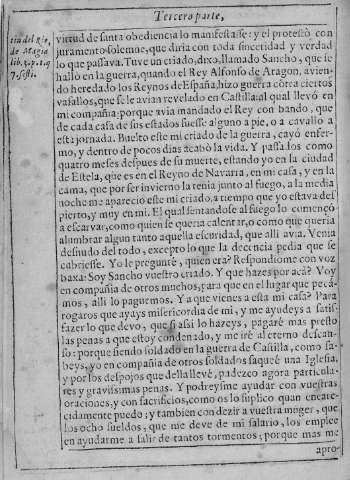 Tercera parte,
tin del Rio,
de Magia
lib. 2. p. 1. q
7. sess.
virtud de santa obediencia lo manifestasse: y el protestò con
juramento solemne, que diria con toda sinceridad y verdad
lo que passava. Tuve un criado, dixo, llamado Sancho, que se
hallò en la guerra, quando el Rey Alfonso de Aragon, avien-
do heredado los Reynos de España, hizo guerra cõtra ciertos
vasallos, que se le aviã revelado en Castilla: al qual llevé en
mi compañia: porque avia mandado el Rey con bando, que
de cada casa de sus estados fuesse alguno a pie, o a cavallo a
esta jornada. Buelto este mi criado de la guerra, cayó enfer-
mo, y dentro de pocos dias acabò la vida. Y passados como
quatro meses despues de su muerte, estando yo en la ciudad
de Estela, que es en el Reyno de Navarra, en mi casa, y en la
cama, que por ser invierno la tenia junto al fuego, a la media
noche me aparecio este mi criado, a tiempo que yo estava des
pierto, y muy en mi. El qual sentandose al fuego lo començò
a escarvar, como quien se queria calentar, o como que queria
alumbrar algun tanto aquella escuridad, que alli avia. Venia
desnudo del todo, excepto lo que la decencia pedia que se
cubriesse. Yo le pregunté, quien era? Respondiome con voz
baxa: Soy Sancho vuestro criado. Y que hazes por acà? Voy
en compañia de otros muchos, para que en el lugar que pecâ-
mos, alli lo paguemos. Y a que vienes a esta mi casa? Para
rogaros que ayays misericordia de mi, y me ayudeys a satis-
fazer lo que devo, que si assi lo hazeys, pagarè mas presto
las penas a que estoy condenado, y me iré al eterno descan-
so: porque siendo soldado en la guerra de Castilla, como sa-
beys, yo en compañia de otros soldados saqueè una Iglesia,
y por los despojos que della llevè, padezco agora particula-
res y gravissimas penas. Y podreysme ayudar con vuestras
oraciones, y con sacrificios, como os lo suplico quan encare-
cidamente puedo; y tambien con dezir a vuestra muger, que
los ocho sueldos, que me deve de mi salario, los emplee
en ayudarme a salir de tantos tormentos; porque mas me
apro-